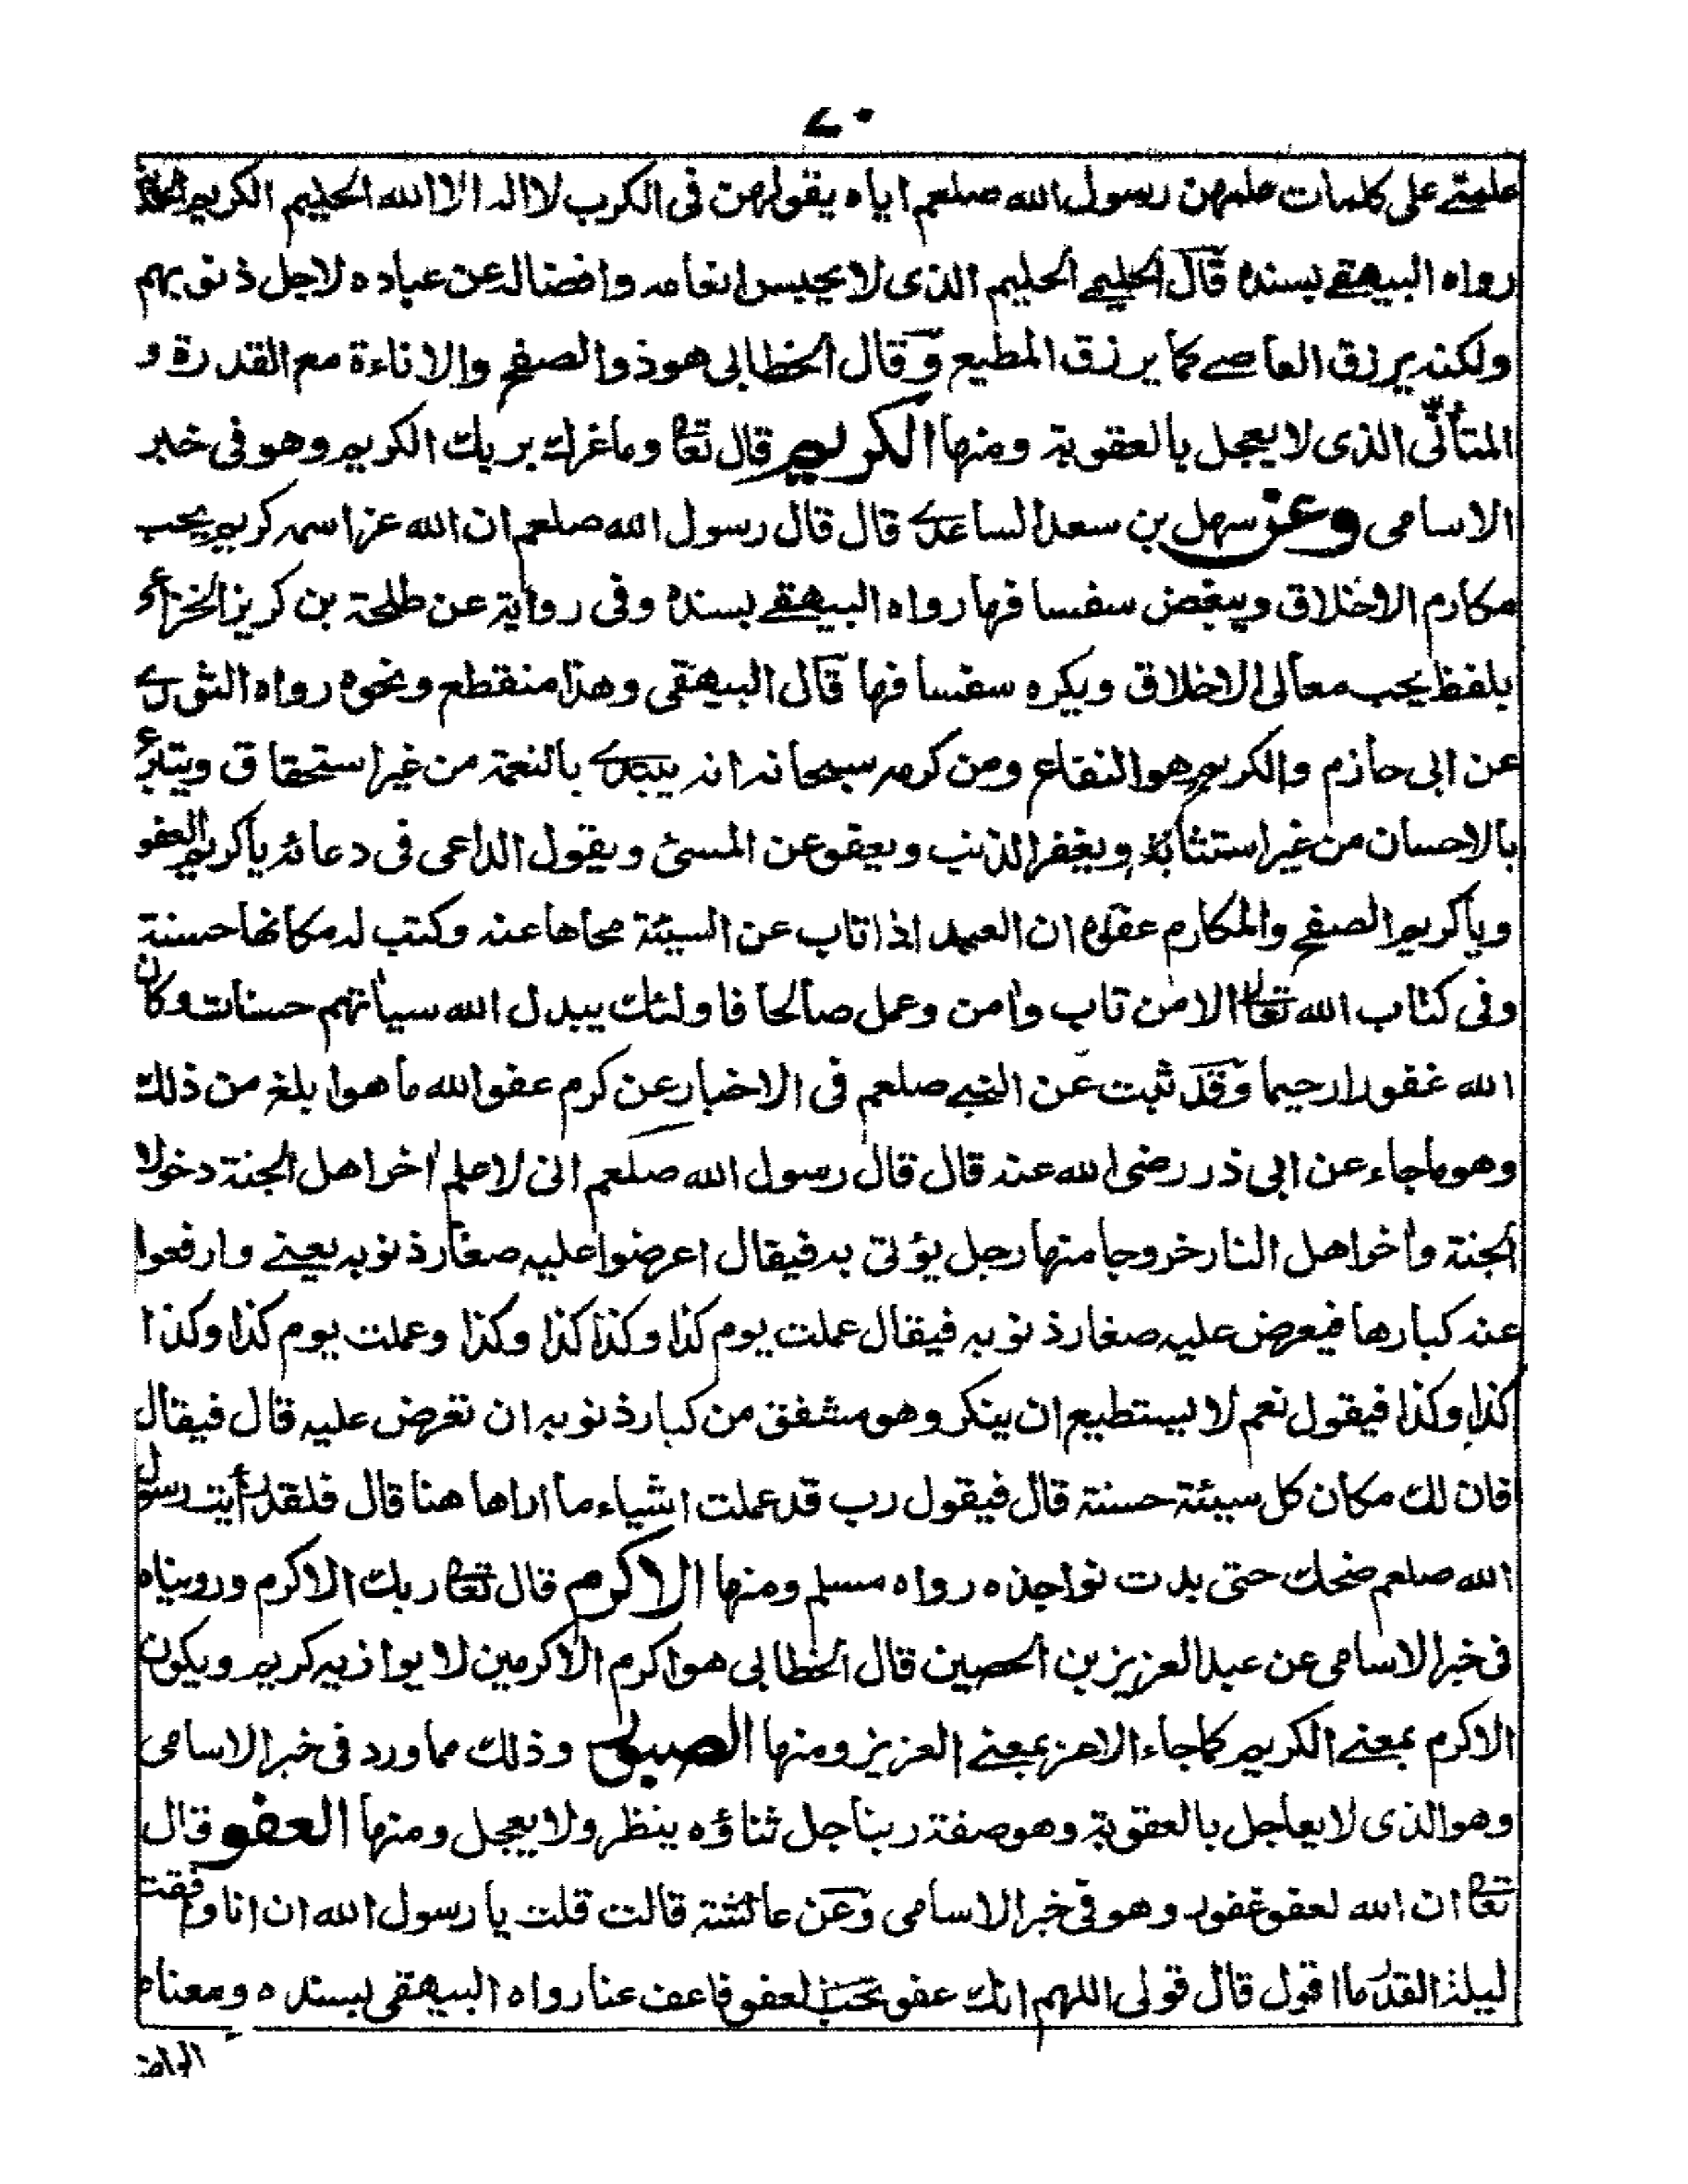 ٧٠
علمتے على كلمات علمهن رسول الله صلعم اياه يقولهن فى الكرب لا اله الا الله الحليم الكريم
رواه البيهقے بسنده قال الحليمے الحليم الذى لا يحبس انعامه وافضاله عن عباده لاجل ذنوبهم
ولكنه يرزق العاصے كما يرزق المطيع وقال الخطابى هو ذو الصفح والاناءة مع القدرة و
المتأنّى الذى لا يعجل بالعقوبة ومنها الكريم قال تعا وما غرك بربك الكريم وهو فى خبر
الاسامى وعن سهل بن سعد الساعدے قال قال رسول الله صلعم ان الله عز اسمه كريم يحب
مكارم الاخلاق ويبغض سفسافها رواه البيهقے بسنده وفى رواية عن طلحة بن كريز الخزاعے
بلفظ يحب معالى الاخلاق ويكره سفسافها قال البيهقى وهذا منقطع ونحوه رواه الثورے
عن ابى حازم والكريم هو النفاع ومن كرمه سبحانه انه يبتدے بالنعمة من غير استحقاق ويتبرع
بالاحسان من غير استثابة ويغفر الذنب ويعفو عن المسئ ويقول الداعى فى دعائه يا كريم العفو
ويا كريم الصفح والمكارم عفوه ان العبد اذا تاب عن السيئة محاها عنه وكتب له مكانها حسنة
وفى كتاب الله تعا الا من تاب وامن وعمل صالحا فاولئك يبدل الله سيأتهم حسنات وكان
الله غفورا رحيما وقد ثبت عن النبے صلعم فى الاخبار عن كرم عفو الله ما هو ابلغ من ذلك
وهو ما جاء عن ابى ذر رضى الله عنه قال قال رسول الله صلعم انى لاعلم اخر اهل الجنة دخولا
الجنة واخر اهل النار خروجا منها رجل يؤتى به فيقال اعرضوا عليه صغار ذنوبه يعنے وارفعوا
عنه كبارها فيعرض عليه صغار ذنوبه فيقال عملت يوم كذا وكذا كذا وكذا وعملت يوم كذا وكذا
كذا وكذا فيقول نعم لا يستطيع ان ينكر وهو مشفق من كبار ذنوبه ان تعرض عليه قال فيقال
فان لك مكان كل سيئة حسنة قال فيقول رب قد عملت اشياء ما اراها هنا قال فلقد رأيت رسول
الله صلعم ضحك حتى بدت نواجذه رواه مسلم ومنها الاكرم قال تعا ربك الاكرم ورويناه
فى خبر الاسامى عن عبد العزيز بن الحصين قال الخطابى هو اكرم الاكرمين لا يوازيه كريم ويكون
الاكرم بمعنے الكريم كما جاء الاعز بمعنے العزيز ومنها الصبور وذلك مما ورد فى خبر الاسامى
وهو الذى لا يعاجل بالعقوبة وهو صفة ربنا جل ثناؤه ينظر ولا يعجل ومنها العفو قال
تعا ان الله لعفو غفور وهو فى خبر الاسامى وعن عائشة قالت قلت يا رسول الله ان انا وافقت
ليلة القدر ما اقول قال قولى اللهم انك عفو تحب العفو فاعف عنا رواه البيهقى بسنده ومعناه